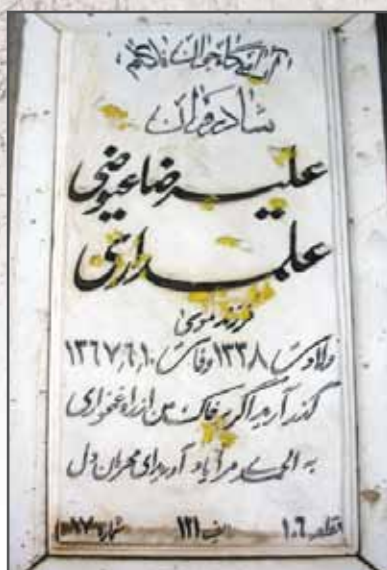 آرامگاه جوان ناکام،
شادروان
علیرضا عیوضی
علمداری
فرزند موسی
ولادت ۱۳۳۸ وفات ۱۳۶۷٫۶٫۱۰
گذر آرید اگر بر خاک من از راه غمخواری
به الحمدی مرا یاد آورید ای مهربان دل
قطعه ۱۰۶ ردیف ۱۲۱ شماره